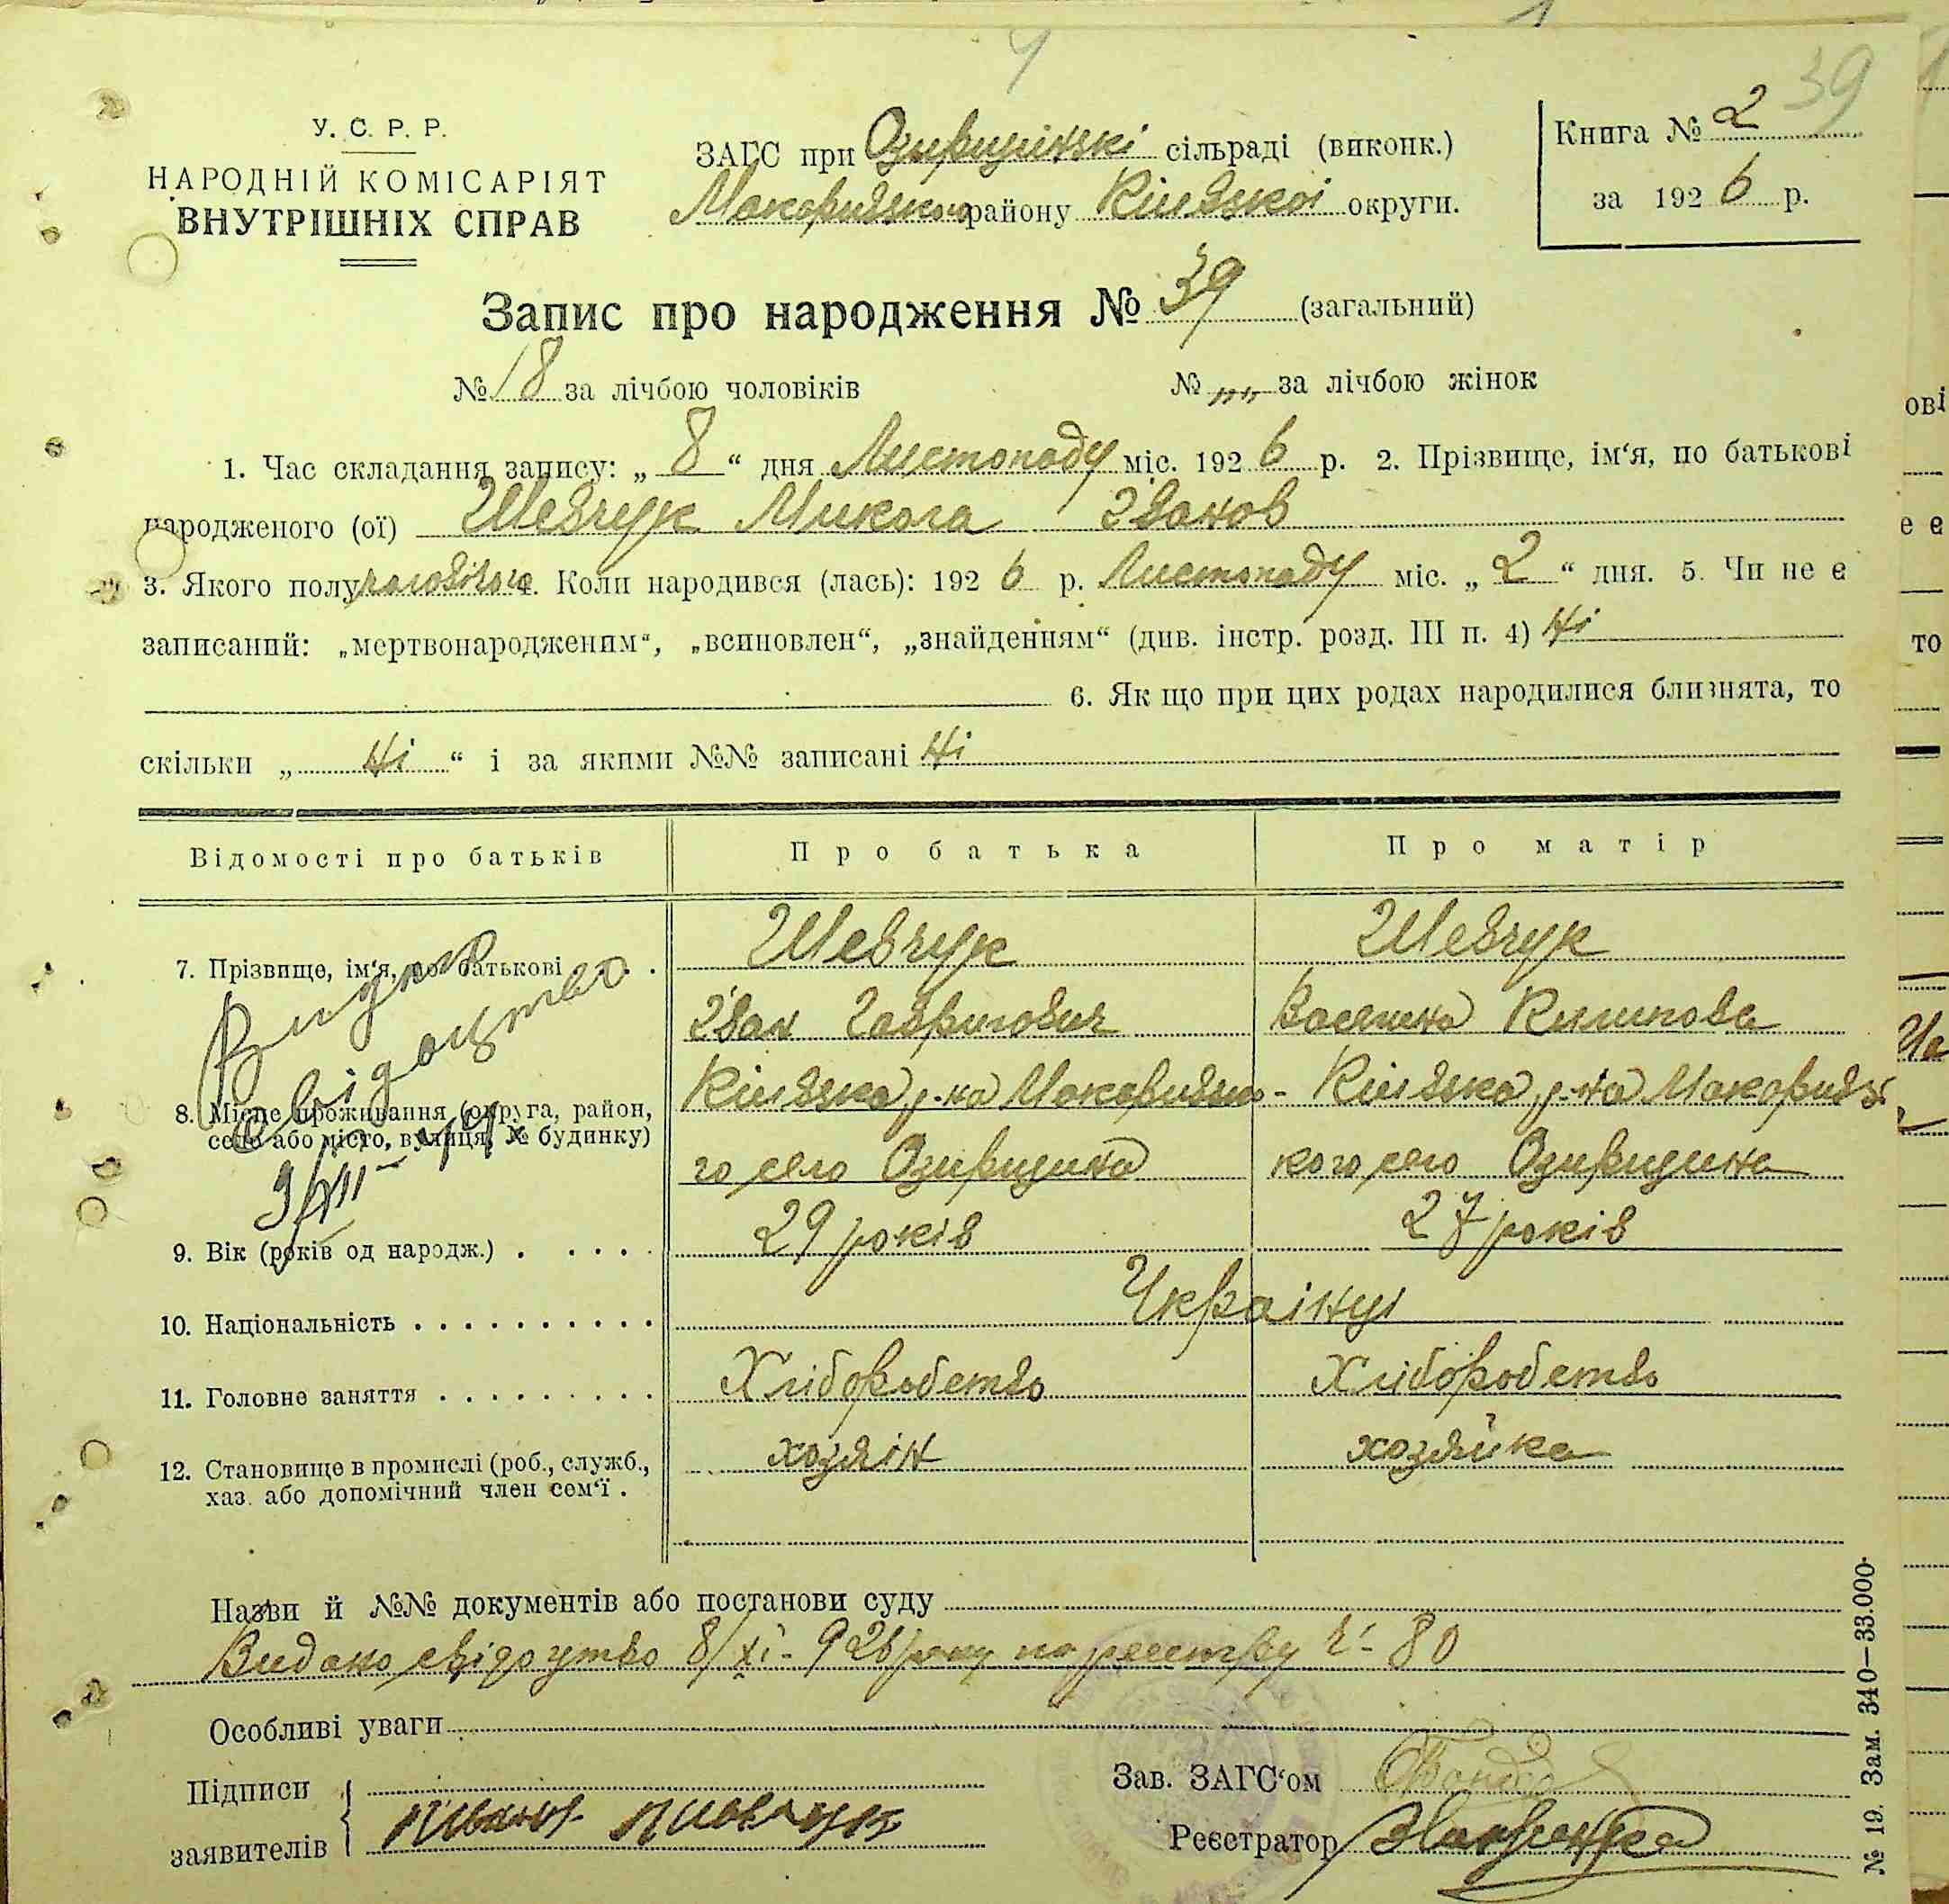 39
У. С. Р. Р.
НАРОДНІЙ КОМІСАРІЯТ
ВНУТРІШНІХ СПРАВ
ЗАГС при Озирщинскі сільраді (виконк.)
Макаривского району Київзкої округи.
Книга № 2
за 1926 р.
Запис про народження № 39 (загальний)
№ 18 за лічбою чоловіків № „„ за лічбою жінок
1. Час складання запису: „ 8 “ дня Листопаду міс. 1926 р. 2. Прізвище, ім‘я, по батькові
народженого (ої) Шевчук Микола Іванов
3. Якого полу чоловічого. Коли народився (лась): 1926 р. Листопаду міс. „ 2 “ дня. 5. Чи не є
записаний: „мертвонародженим“, „всиновлен“, „знайденням“ (див. інстр. розд. III п. 4) Ні
6. Як що при цих родах народилися близнята, то
скільки „ Ні “ і за якими №№ записані Ні
Відомості про батьків Про батька Про матір
7. Прізвище, ім‘я, по батькові . . . Шевчук Шевчук
Іван Гаврилович Василина Климова
8. Місце проживання (округа, район, Київзка, р-на Макаривзко- Київзка, р-на Макаривзь
село або місто, вулиця, № будинку) го село Озирщина кого село Озирщина
9. Вік (років од народж.) . . . . . 29 років 27 років
10. Національність . . . . . . . . . . Українці
11. Головне заняття . . . . . . . . . Хліборобство Хліборобство
12. Становище в промислі (роб., служб., хозяін хозяйка
хаз. або допомічний член сем‘ї .
Назви й №№ документів або постанови суду
Видано свідоцтво 8/хі-926 року по реестру №- 80
Особливі уваги
Підписи
заявителів
Зав. ЗАГС‘ом
Реєстратор
№ 19. Зам. 340—33.000.